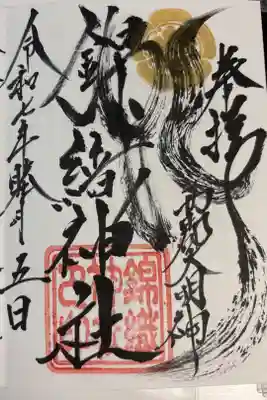 奉拝
錦織神社
令和七年睦月五日
錦織
神社
之印